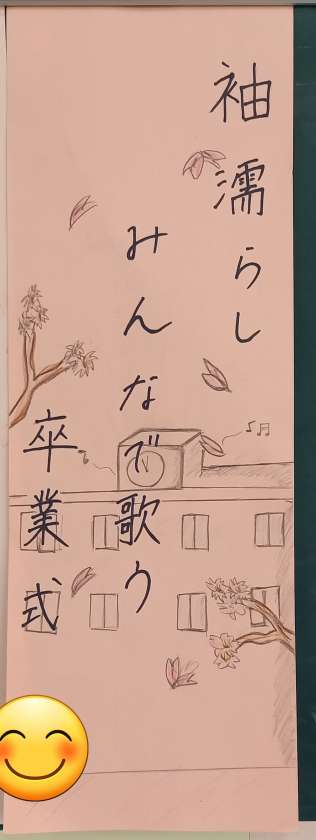 袖濡らし
みんなで歌う
卒業式